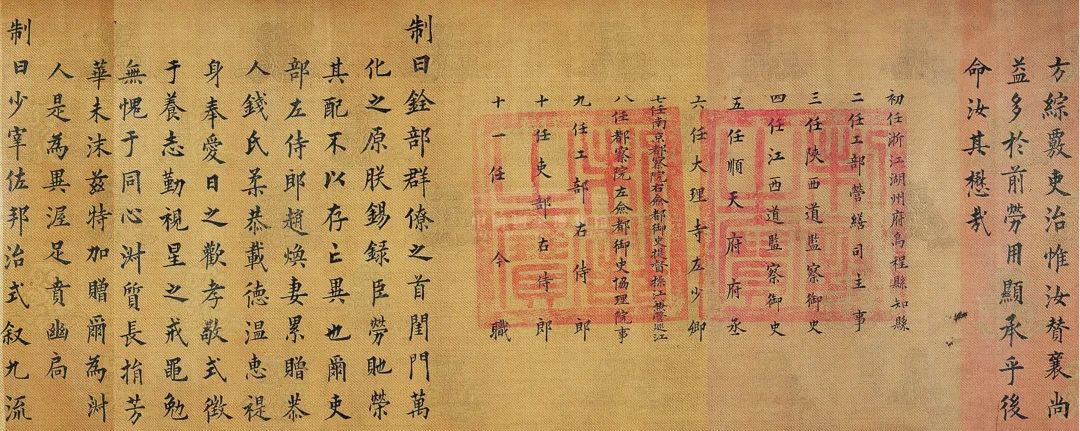 方綜覈吏治惟汝賛襄尚
益多於前勞用顯承乎後
命汝其懋哉
初任浙江湖州府烏程縣知縣
二任工部營繕司主事
三任陝西道監察御史
四任江西道監察御史
五任順天府府丞
六任大理寺左少卿
七任南京都察院右僉都御史提督操江兼管巡江
八任都察院左僉都御史協理院事
九任工部右侍郎
十任吏部右侍郎
十一任今職
制曰銓部群僚之首閨門萬
化之原朕錫録臣勞貤榮
其配不以存亡異也爾吏
部左侍郎趙煥妻累贈恭
人錢氏柔恭載德温惠禔
身奉愛日之歡孝敬式徵
于養志勤視星之戒黽勉
無愧于同心淑質長捐芳
華未沬兹特加贈爾為淑
人是為異渥足賁幽扃
制曰少宰佐邦治式叙九流